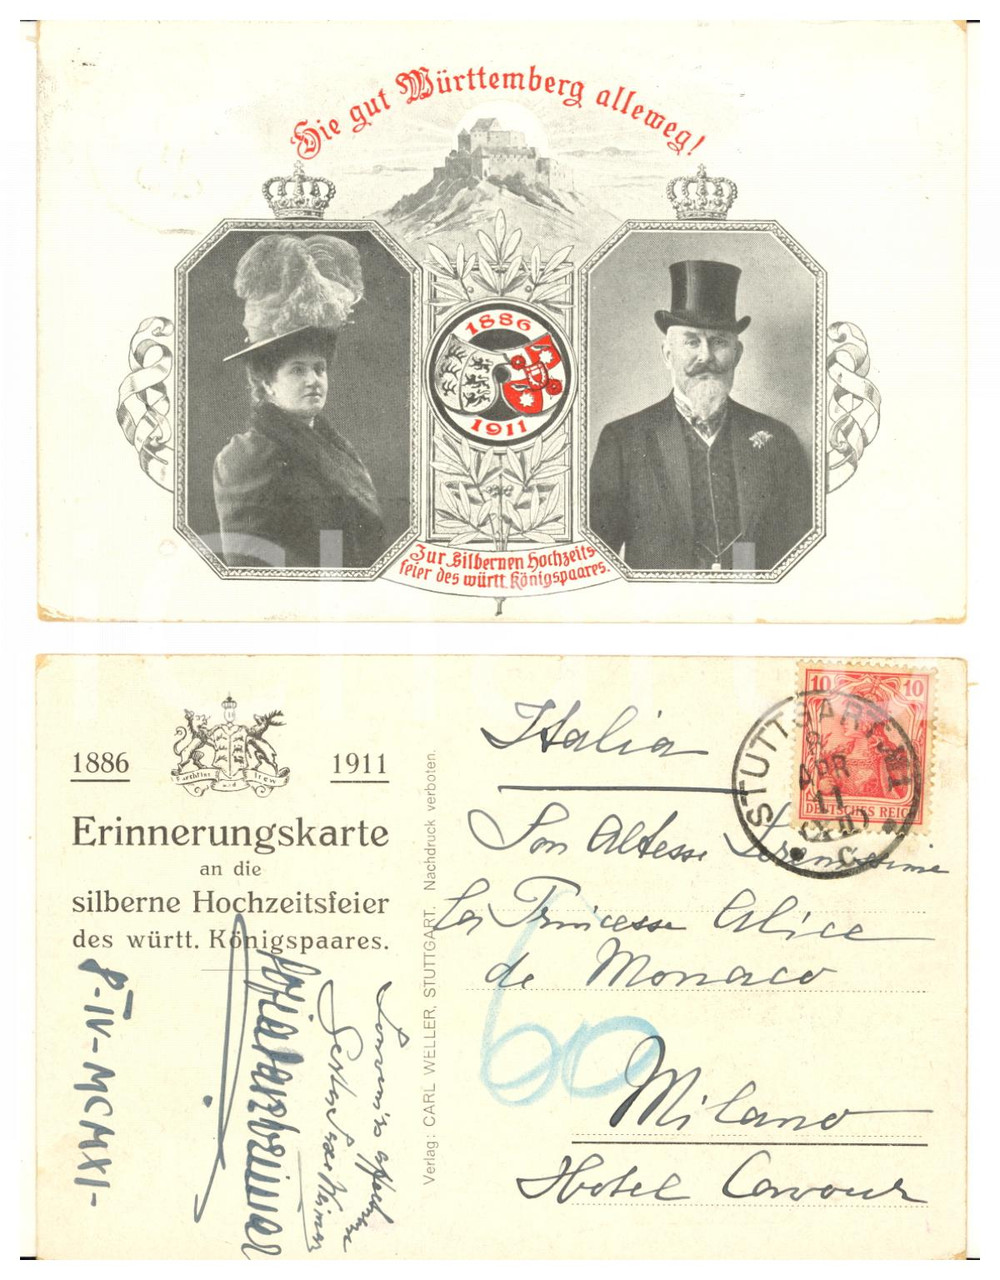 Hie gut Württemberg alleweg!
1886
1911
Zur Silbernen Hochzeits-
feier des württ. Königspaares.
1886
1911
Furchtlos und trew
Erinnerungskarte
an die
silberne Hochzeitsfeier
des württ. Königspaares.
8-IV-MCMXI-
Verlag: CARL WELLER, STUTTGART. Nachdruck verboten.
10 10
DEUTSCHES REICH
STUTTGART
8
APR
11
C
Italia
Son Altesse Serenissime
La Princesse Alice
de Monaco
60
Milano
Hotel Cavour